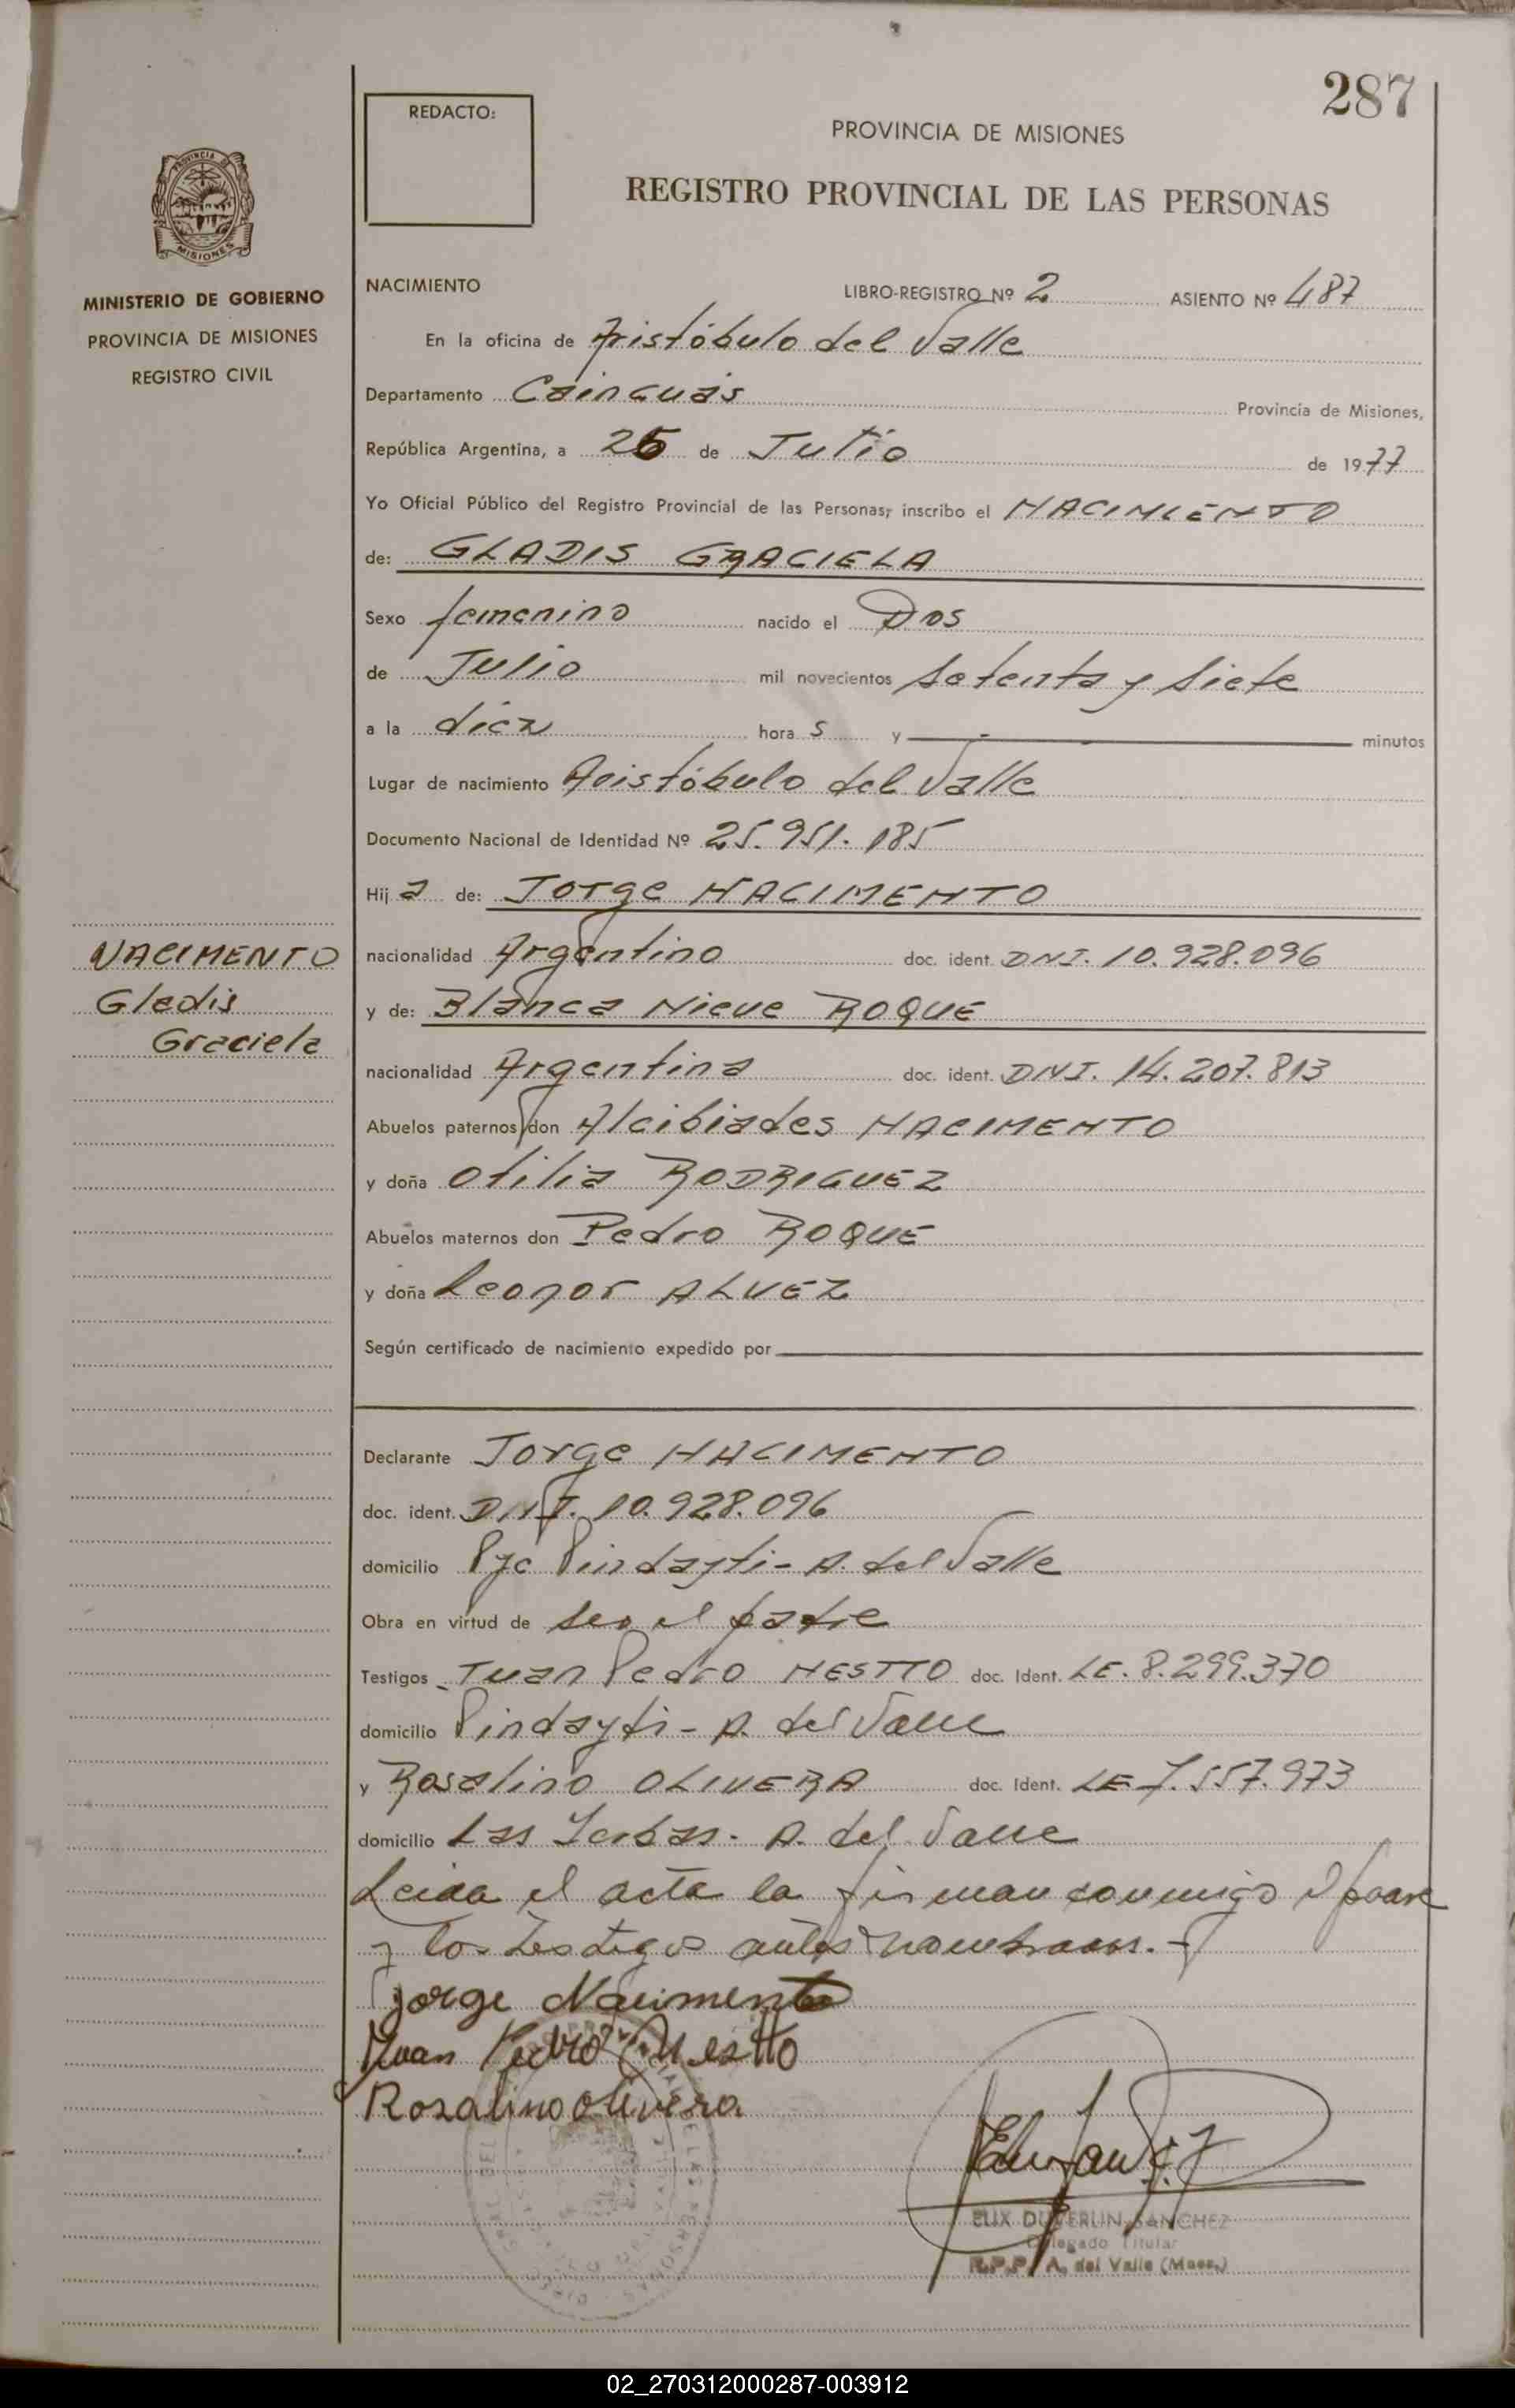 287
REDACTO:
PROVINCIA DE MISIONES
REGISTRO PROVINCIAL DE LAS PERSONAS
PROVINCIA DE
MISIONES
MINISTERIO DE GOBIERNO
PROVINCIA DE MISIONES
REGISTRO CIVIL
NACIMIENTO LIBRO-REGISTRO Nº 2 ASIENTO Nº 487
En la oficina de Aristóbulo del Valle
Departamento Cainguás Provincia de Misiones,
República Argentina, a 26 de Julio de 1977
Yo Oficial Público del Registro Provincial de las Personas, inscribo el NACIMIENTO
de: GLADIS GRACIELA
Sexo femenino nacido el Dos
de Julio mil novecientos setenta y siete
a la diez hora s y — minutos
Lugar de nacimiento Aristóbulo del Valle
Documento Nacional de Identidad Nº 25.951.185
Hij a de: Jorge NACIMENTO
NACIMENTO
Gladis
Graciela
nacionalidad Argentino doc. ident. DNI. 10.928.096
y de: Blanca Nieve ROQUE
nacionalidad Argentina doc. ident. DNI. 14.207.813
Abuelos paternos don Alcibiades NACIMENTO
y doña Otilia RODRIGUEZ
Abuelos maternos don Pedro ROQUE
y doña Leonor ALVEZ
Según certificado de nacimiento expedido por
Declarante Jorge NACIMENTO
doc. ident. DNI. 10.928.096
domicilio Pje Pindayti - A. del Valle
Obra en virtud de ser el padre
Testigos Juan Pedro NESTTO doc. Ident. LE. 8.299.370
domicilio Pindayti - A. del Valle
y Rosalino OLIVERA doc. Ident. LE 7.557.973
domicilio Las Yerbas - A. del Valle
Leida el acta la firman conmigo el padre
y los testigos antes nombrados.-
Jorge Nacimento
Juan Pedro Nestto
Rosalino Olivera
ELIX DUVERLIN SANCHEZ
Delegado Titular
R.P.P. A. del Valle (Mnes.)
02_270312000287-003912